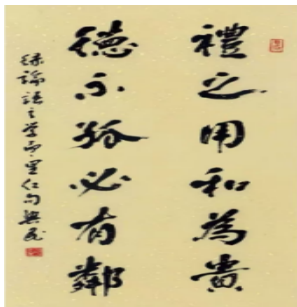 禮之用和為貴
德不孤必有鄰
錄論語之學而里仁句